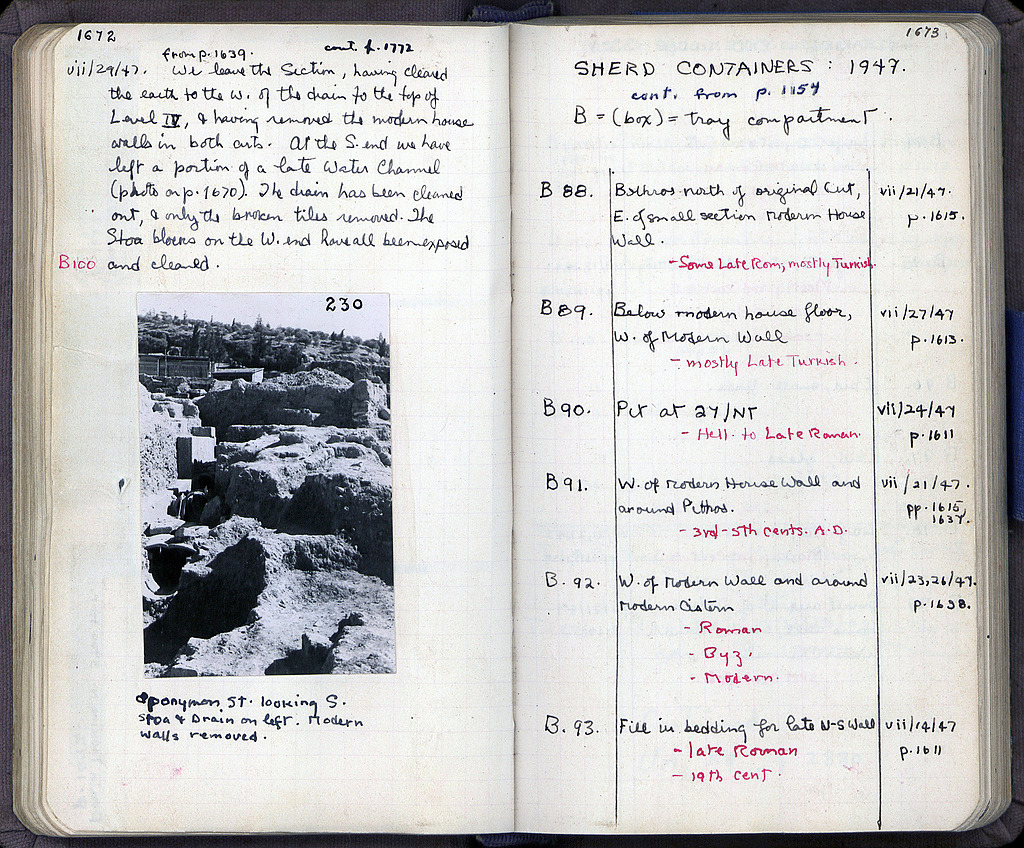 1672
from p. 1639.
cont. p. 1772
vii/29/47. We leave the Section, having cleared
the earth to the W. of the drain to the top of
Level IV, & having removed the modern house
walls in both cuts. At the S. end we have
left a portion of a late Water Channel
(photo on p. 1670). The drain has been cleaned
out, & only the broken tiles removed. The
Stoa blocks on the W. end have all been exposed
B100 and cleaned.
230
Eponymon St. looking S.
Stoa & Drain on left. Modern
walls removed.
1673
SHERD CONTAINERS: 1947.
cont. from p. 1154
B = (box) = tray compartment.
B 88. Bothros north of original Cut, vii/21/47.
E. of small section Modern House p. 1615.
Wall.
- Some Late Rom; mostly Turkish.
B 89. Below modern house floor, vii/27/47
W. of Modern Wall p. 1613.
- mostly Late Turkish.
B 90. Pit at 27/NT vii/24/47
- Hell. to Late Roman. p. 1611
B 91. W. of Modern House Wall and vii/21/47.
around Pithos. pp. 1615,
1637.
- 3rd-5th cents. A.D.
B. 92. W. of Modern Wall and around vii/23,26/47.
Modern Cistern p. 1638.
- Roman
- Byz.
- Modern.
B. 93. Fill in bedding for late N-S Wall vii/14/47
- late Roman p. 1611
- 19th cent.